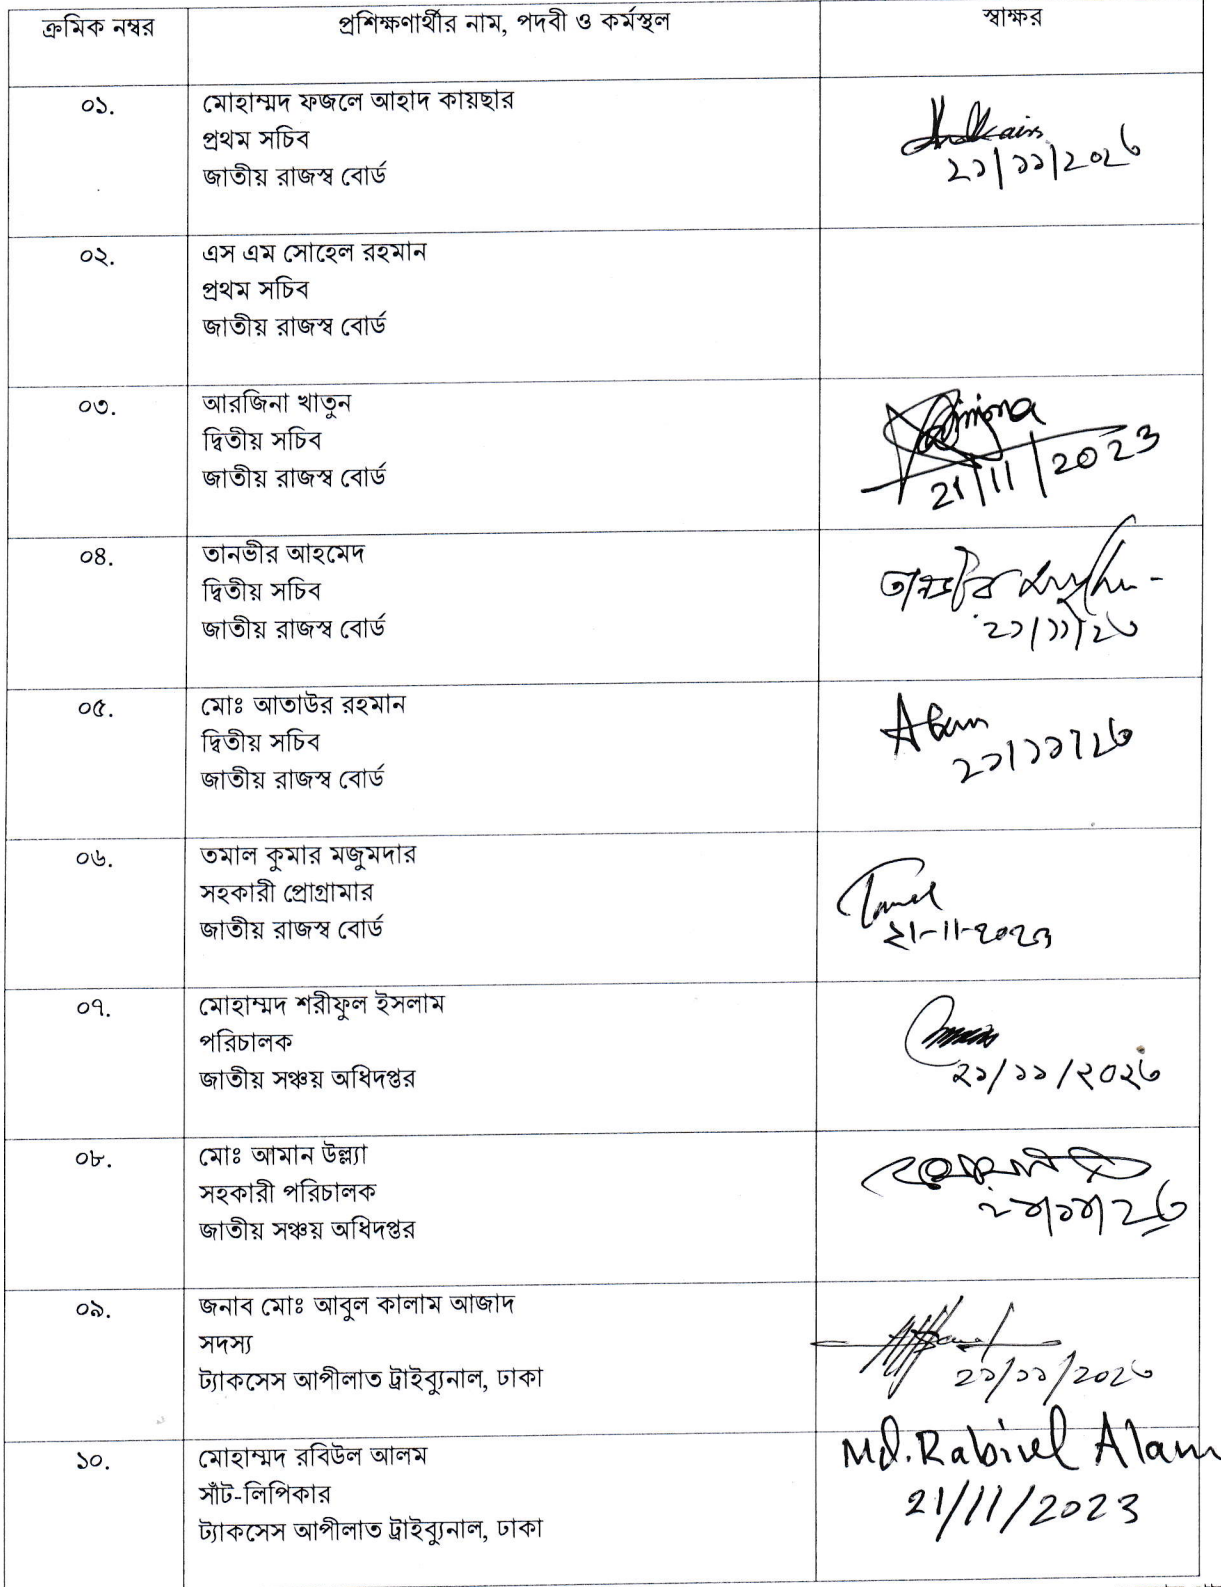 ক্রমিক নম্বর
প্রশিক্ষণার্থীর নাম, পদবী ও কর্মস্থল
স্বাক্ষর
০১.
মোহাম্মদ ফজলে আহাদ কায়ছার
প্রথম সচিব
জাতীয় রাজস্ব বোর্ড
২১/১১/২০২৩
০২.
এস এম সোহেল রহমান
প্রথম সচিব
জাতীয় রাজস্ব বোর্ড
০৩.
আরজিনা খাতুন
দ্বিতীয় সচিব
জাতীয় রাজস্ব বোর্ড
21/11/2023
০৪.
তানভীর আহমেদ
দ্বিতীয় সচিব
জাতীয় রাজস্ব বোর্ড
তানভীর
২১/১১/২৩
০৫.
মোঃ আতাউর রহমান
দ্বিতীয় সচিব
জাতীয় রাজস্ব বোর্ড
২১/১১/২৩
০৬.
তমাল কুমার মজুমদার
সহকারী প্রোগ্রামার
জাতীয় রাজস্ব বোর্ড
21-11-2023
০৭.
মোহাম্মদ শরীফুল ইসলাম
পরিচালক
জাতীয় সঞ্চয় অধিদপ্তর
২১/১১/২০২৩
০৮.
মোঃ আমান উল্ল্যা
সহকারী পরিচালক
জাতীয় সঞ্চয় অধিদপ্তর
২১/১১/২৩
০৯.
জনাব মোঃ আবুল কালাম আজাদ
সদস্য
ট্যাকসেস আপীলাত ট্রাইব্যুনাল, ঢাকা
২১/১১/২০২৩
১০.
মোহাম্মদ রবিউল আলম
সাঁট-লিপিকার
ট্যাকসেস আপীলাত ট্রাইব্যুনাল, ঢাকা
Md. Rabiul Alam
21/11/2023